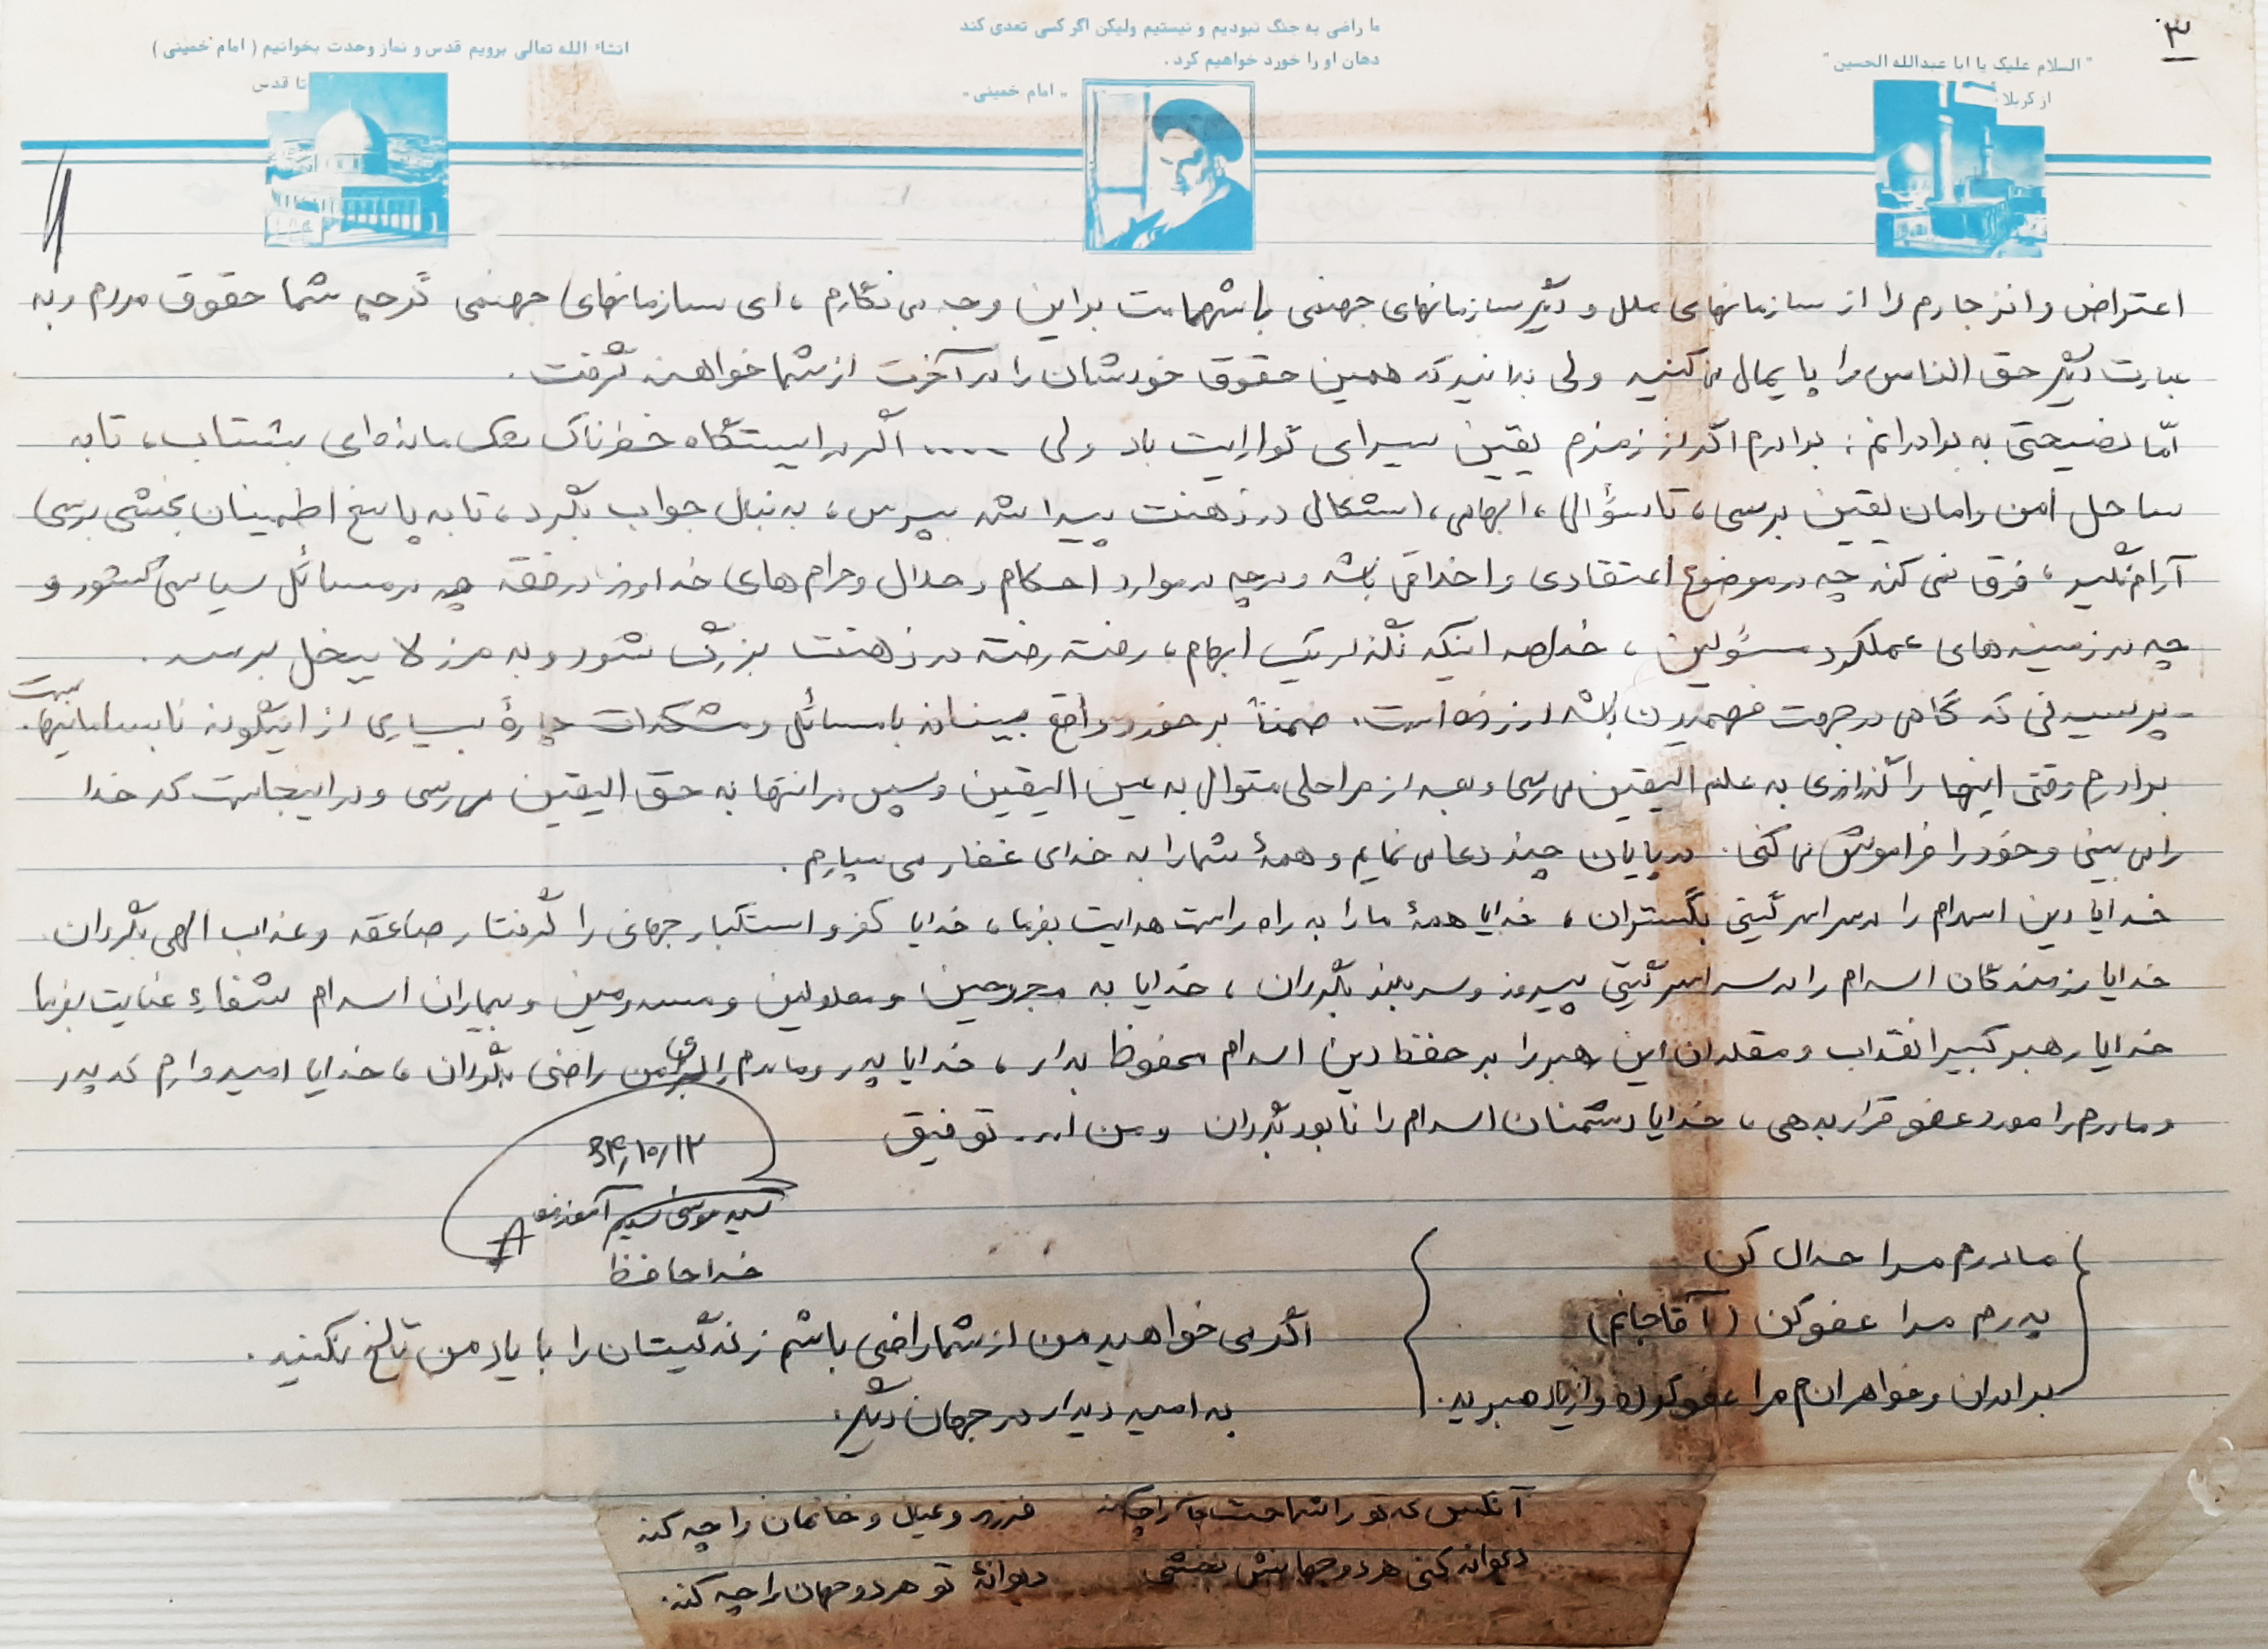 ۳
ما راضی به جنگ نبودیم و نیستیم ولیکن اگر کسی تعدی کند
دهان او را خورد خواهیم کرد.
"امام خمینی"
"السلام علیک یا ابا عبدالله الحسین"
از کربلا
انشاء الله تعالی برویم قدس و نماز وحدت بخوانیم (امام خمینی)
تا قدس
اعتراض و انزجارم را از سازمانهای ملل و دیگر سازمانهای جهنمی با شهامت بر این وجه می نگارم، ای سازمانهای جهنمی گرچه شما حقوق مردم و به
عبارت دیگر حق الناس را پایمال می کنید ولی بدانید که همین حقوق خودشان را در آخرت از شما خواهند گرفت.
امّا نصیحتی به برادرانم: برادرم اگر از زمزم یقین سیرابی گوارایت باد ولی ..... اگر در ایستگاه خطرناک شک مانده‌ای بشتاب، تا به
ساحل امن و امان یقین برسی، تا سؤالی، ابهامی، اشکالی در ذهنت پیدا شد بپرس، به دنبال جواب بگرد، تا به پاسخ اطمینان بخشی برسی
آرام نگیر، فرق نمی کند چه در موضوع اعتقادی و اخلاقی باشد و چه در موارد احکام و حلال و حرام های خداوند در فقه چه در مسائل سیاسی کشور و
چه در زمینه های عملکرد مسئولین، خلاصه اینکه نگذار یک ابهام، رفته رفته در ذهنت بزرگ شود و به مرز لاینحل برسد.
پرسیدنی که گامی در جهت فهمیدن باشد ارزنده است. ضمناً برخورد واقع بینانه با مسائل و مشکلات چارهٔ بسیاری از اینگونه نابسامانیهاست.
برادرم وقتی اینها را گذراندی به علم الیقین می رسی و بعد از مراحلی متوالی به عین الیقین و سپس در انتها به حق الیقین می رسی و در اینجاست که خدا
را می بینی و خود را فراموش می کنی. در پایان چند دعا می نمایم و همهٔ شما را به خدای غفار می سپارم.
خدایا دین اسلام را در سراسر گیتی بگستران، خدایا همهٔ ما را به راه راست هدایت بفرما، خدایا کفر و استکبار جهانی را گرفتار صاعقه و عذاب الهی بگردان.
خدایا رزمندگان اسلام را در سراسر گیتی پیروز و سربلند بگردان، خدایا به مجروحین و معلولین و مصدومین و بیماران اسلام شفاء عنایت بفرما
خدایا رهبر کبیر انقلاب و مقلدان این رهبر را بر حفظ دین اسلام محفوظ بدار، خدایا پدر و مادرم را از من راضی بگردان، خدایا امیدوارم که پدر
و مادرم را مورد عفو قرار بدهی، خدایا دشمنان اسلام را نابود بگردان و من الله توفیق
۶۴/۱۰/۱۲
سید موسی
خداحافظ
مادرم مرا حلال کن
پدرم مرا عفو کن (آقاجانم)
برادران و خواهرانم مرا عفو کرده و از یاد مبرید.
اگر می خواهید من از شما راضی باشم زندگیتان را با یاد من تلخ نکنید.
به امید دیدار در جهان دیگر.
آنکس که تو را شناخت جان را چه کند فرزند و عیال و خانمان را چه کند
دیوانه کنی هر دو جهانش بخشی دیوانهٔ تو هر دو جهان را چه کند.